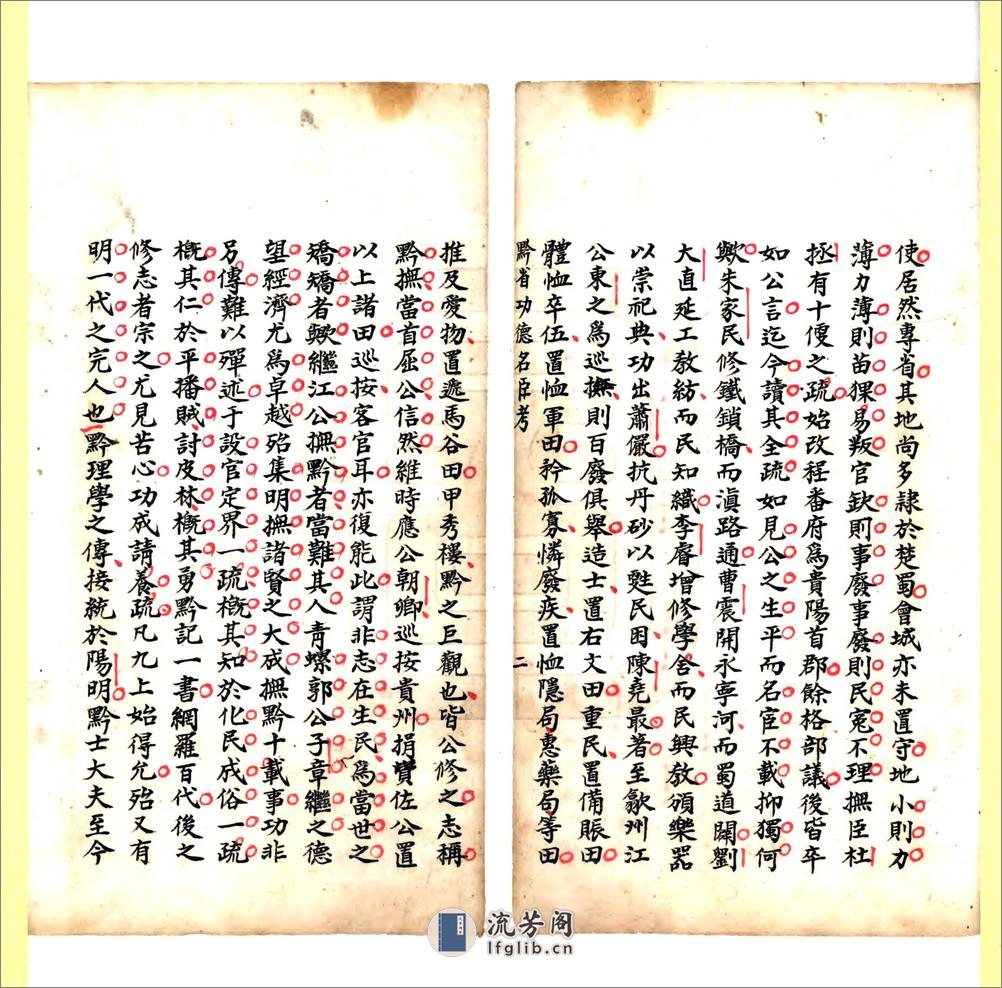 使居然專省其地尚多隸於楚蜀會城亦未置守地小則力
薄力薄則苗猓易叛官缺則事廢事廢則民冤不理撫臣杜
拯有十便之疏始改程番府為貴陽首郡餘格部議後皆卒
如公言迄今讀其全疏如見公之生平而名宦不載抑獨何
歟朱家民修鐵鎖橋而滇路通曹震開永寧河而蜀道闢劉
大直延工教紡而民知織李睿增修學舍而民興教頒樂器
以崇祀典功出蕭儼抗丹砂以甦民困陳堯最著至歙州江
公東之為巡撫則百廢俱舉造士置右文田重民置備賑田
體恤卒伍置恤軍田矜孤寡憐廢疾置恤隱局惠藥局等田
黔省功德名臣考 二
推及愛物置遞馬谷田甲秀樓黔之巨觀也皆公修之志稱
黔撫當首屈公信然維時應公朝卿巡按貴州捐貲佐公置
以上諸田巡按客官耳亦復能此謂非志在生民為當世之
矯矯者歟繼江公撫黔者當難其人青螺郭公子章繼之德
望經濟尤為卓越殆集明撫諸賢之大成撫黔十載事功非
另傳難以殫述于設官定界一疏概其知於化民成俗一疏
概其仁於平播賊討皮林概其勇黔記一書網羅百代後之
修志者宗之尤見苦心功成請養疏凡九上始得允殆又有
明一代之完人也黔理學之傳接統於陽明黔士大夫至今
流芳阁
lfglib.cn